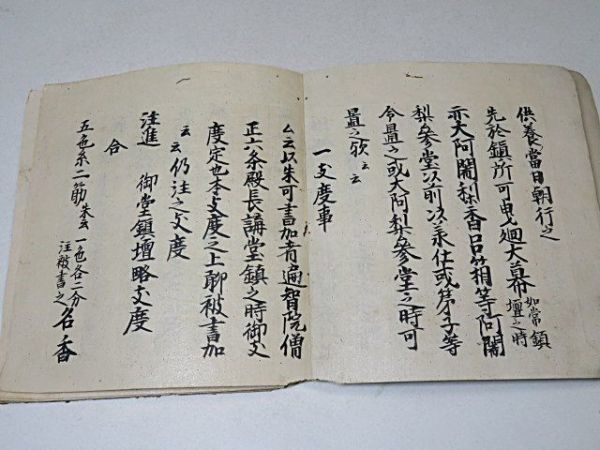 供養當日朝行之
先於鎮所可曳廻大幕如常鎮壇之時
亦大阿闍梨香呂筥等阿闍
梨參堂以前以承仕或弟子等
令置之或大阿梨參堂之時可
置之欤云云
一支度事
云以朱可書加者遍智院僧
正六条殿長講堂鎮之時御支
度定也本支度之上聊被書加
云云仍注之支度
注進 御堂鎮壇略支度
合
五色糸二筋朱云一色各二分注被書之名香